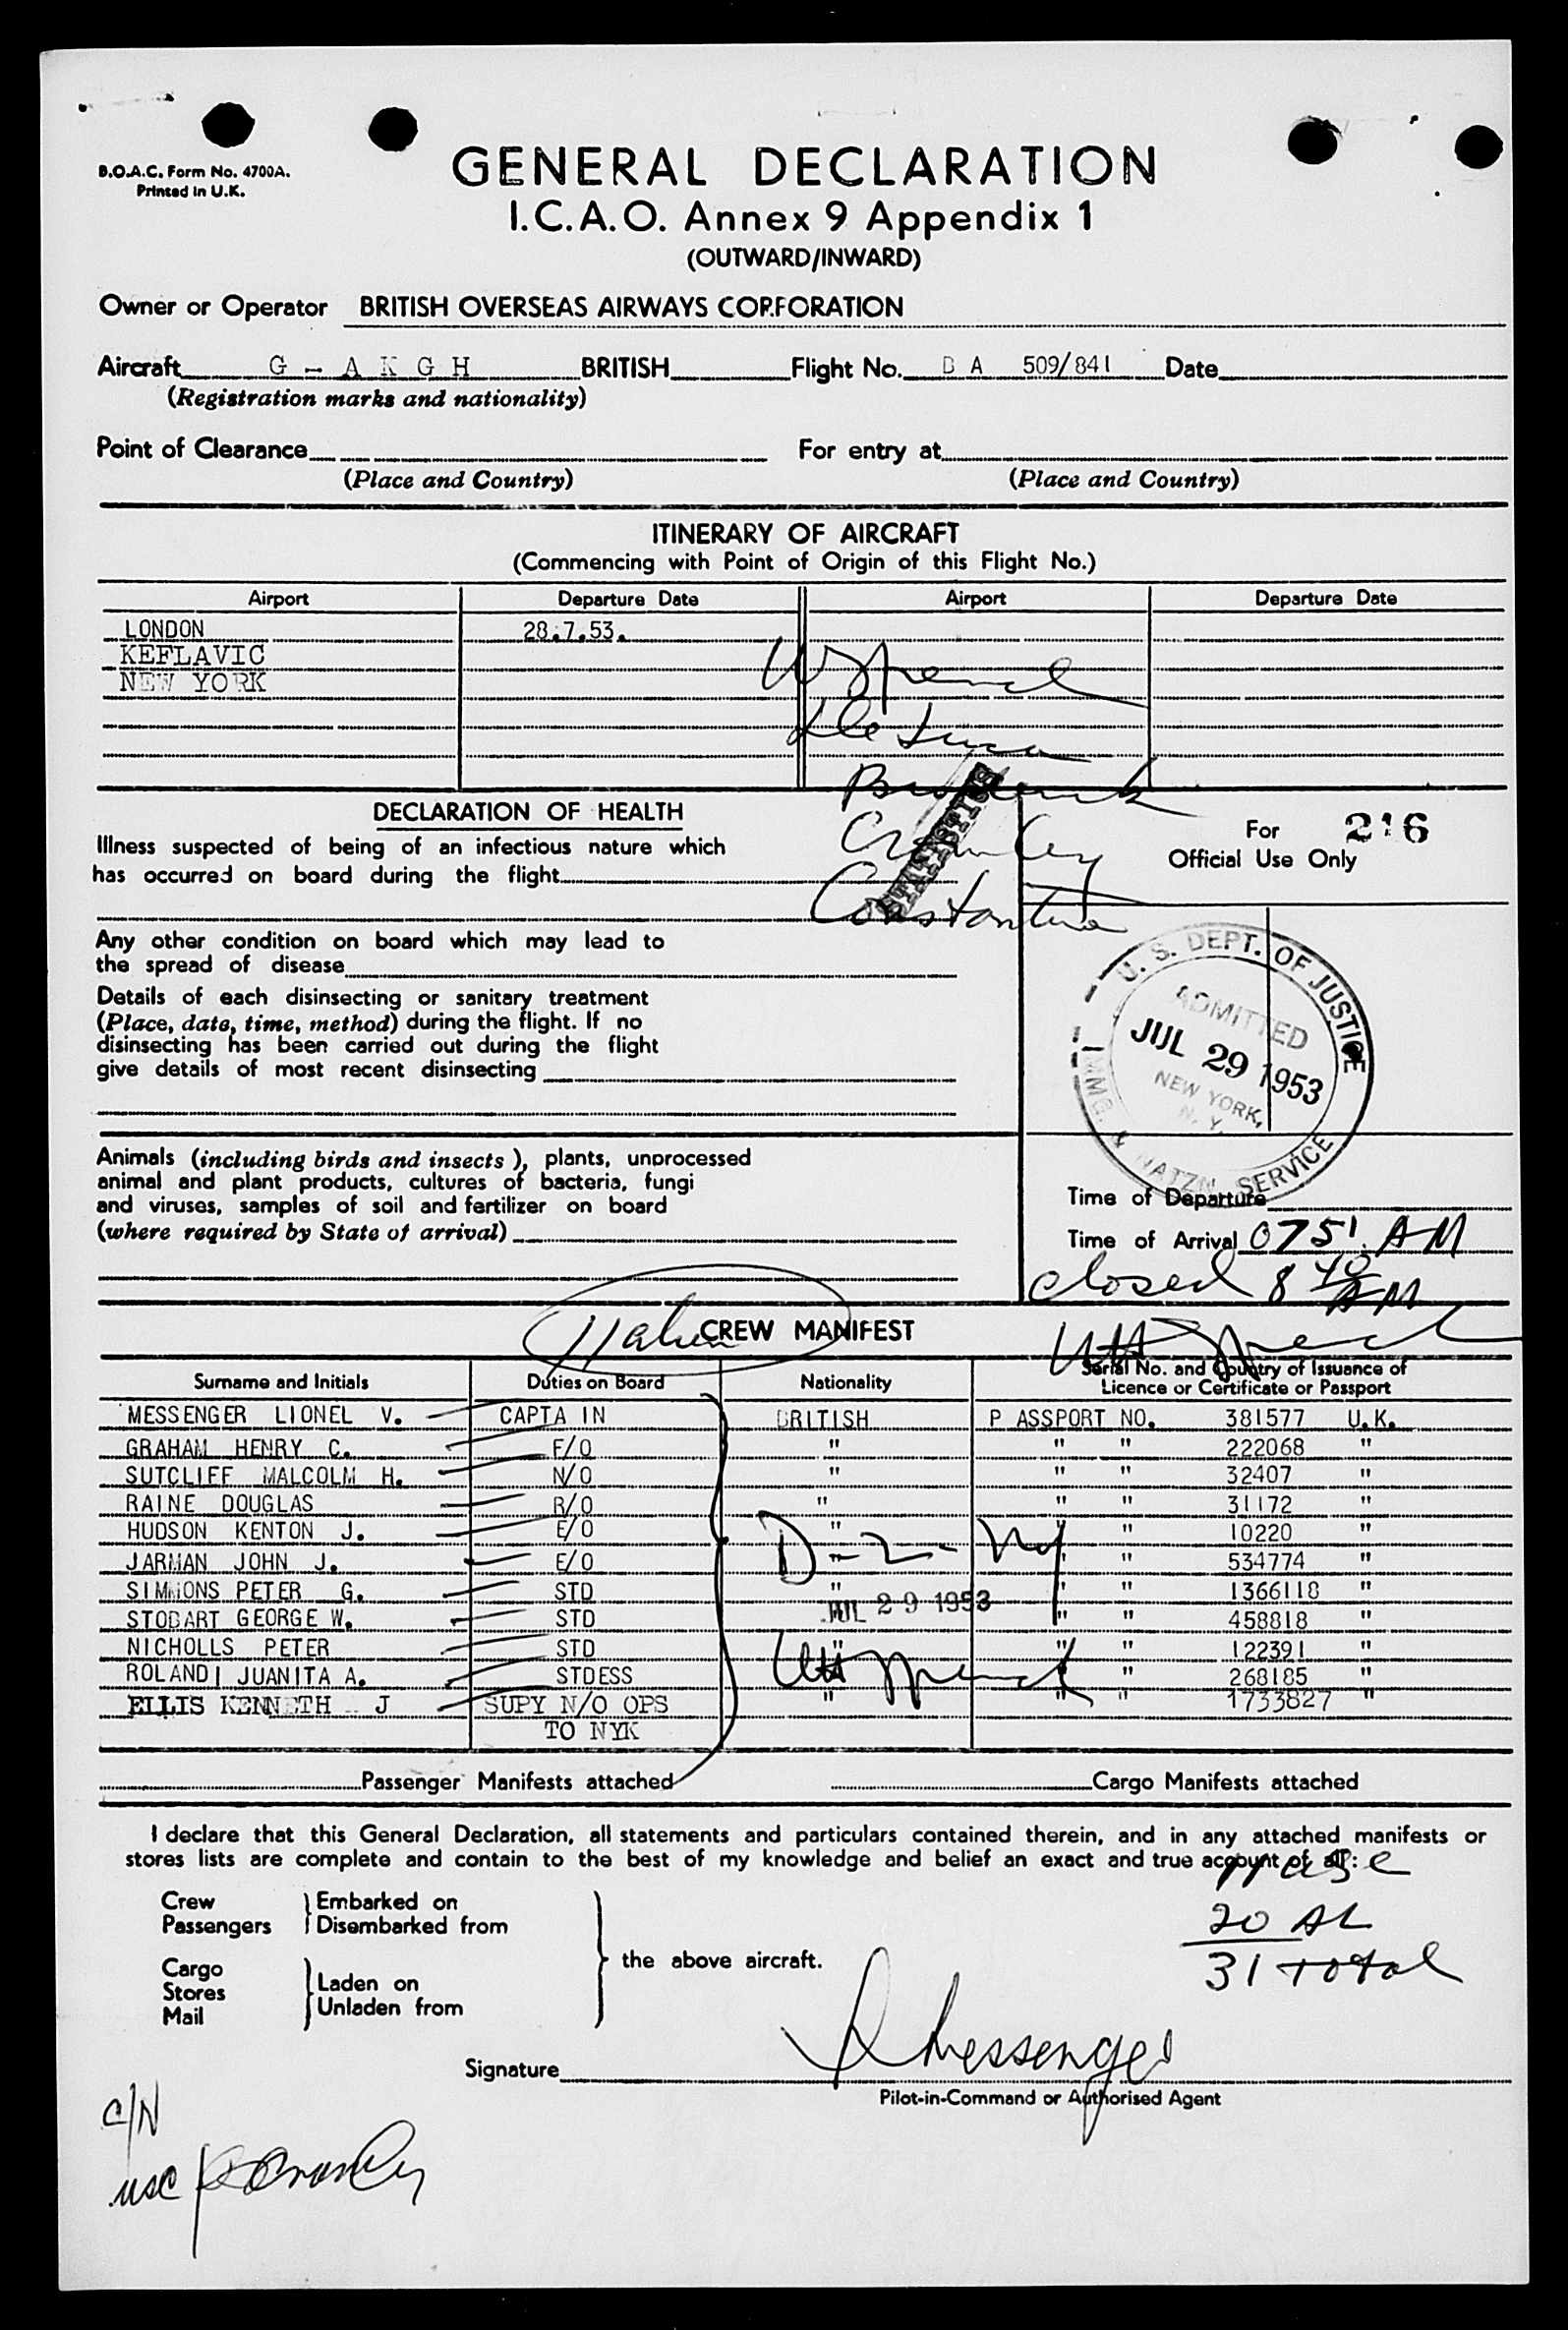 B.O.A.C. Form No. 4700A.
Printed in U.K.
GENERAL DECLARATION
I.C.A.O. Annex 9 Appendix 1
(OUTWARD/INWARD)
Owner or Operator BRITISH OVERSEAS AIRWAYS CORPORATION
Aircraft G - A K G H BRITISH Flight No. B A 509/841 Date
(Registration marks and nationality)
Point of Clearance For entry at
(Place and Country) (Place and Country)
ITINERARY OF AIRCRAFT
(Commencing with Point of Origin of this Flight No.)
Airport Departure Date Airport Departure Date
LONDON 28.7.53.
KEFLAVIC
NEW YORK
De Luca
DECLARATION OF HEALTH
Illness suspected of being of an infectious nature which
has occurred on board during the flight
Crowley
STATISTICS
Constantine
For 216
Official Use Only
Any other condition on board which may lead to
the spread of disease
Details of each disinsecting or sanitary treatment
(Place, date, time, method) during the flight. If no
disinsecting has been carried out during the flight
give details of most recent disinsecting
U. S. DEPT. OF JUSTICE
ADMITTED
JUL 29 1953
NEW YORK,
N. Y.
IMMG. & NATZN. SERVICE
Animals (including birds and insects), plants, unprocessed
animal and plant products, cultures of bacteria, fungi
and viruses, samples of soil and fertilizer on board
(where required by State of arrival)
Time of Departure
Time of Arrival 0751 AM
closed 8 40 AM
CREW MANIFEST
Surname and Initials Duties on Board Nationality Serial No. and Country of Issuance of
Licence or Certificate or Passport
MESSENGER LIONEL V. CAPTAIN BRITISH PASSPORT NO. 381577 U.K.
GRAHAM HENRY C. F/O " " " 222068 "
SUTCLIFF MALCOLM H. N/O " " " 32407 "
RAINE DOUGLAS R/O " " " 31172 "
HUDSON KENTON J. E/O " " " 10220 "
JARMAN JOHN J. E/O " " " 534774 "
SIMMONS PETER G. STD " " " 1366118 "
STOBART GEORGE W. STD " " " 458818 "
NICHOLLS PETER STD " " " 122391 "
ROLANDI JUANITA A. STDESS " " 268185 "
ELLIS KENNETH J SUPY N/O OPS " " " 1733827 "
TO NYK
JUL 29 1953
Passenger Manifests attached Cargo Manifests attached
I declare that this General Declaration, all statements and particulars contained therein, and in any attached manifests or
stores lists are complete and contain to the best of my knowledge and belief an exact and true account of all:
Crew Embarked on
Passengers Disembarked from
the above aircraft.
Cargo
Stores Laden on
Mail Unladen from
20 AL
31 total
Signature L Messenger
Pilot-in-Command or Authorised Agent
C/N
USC